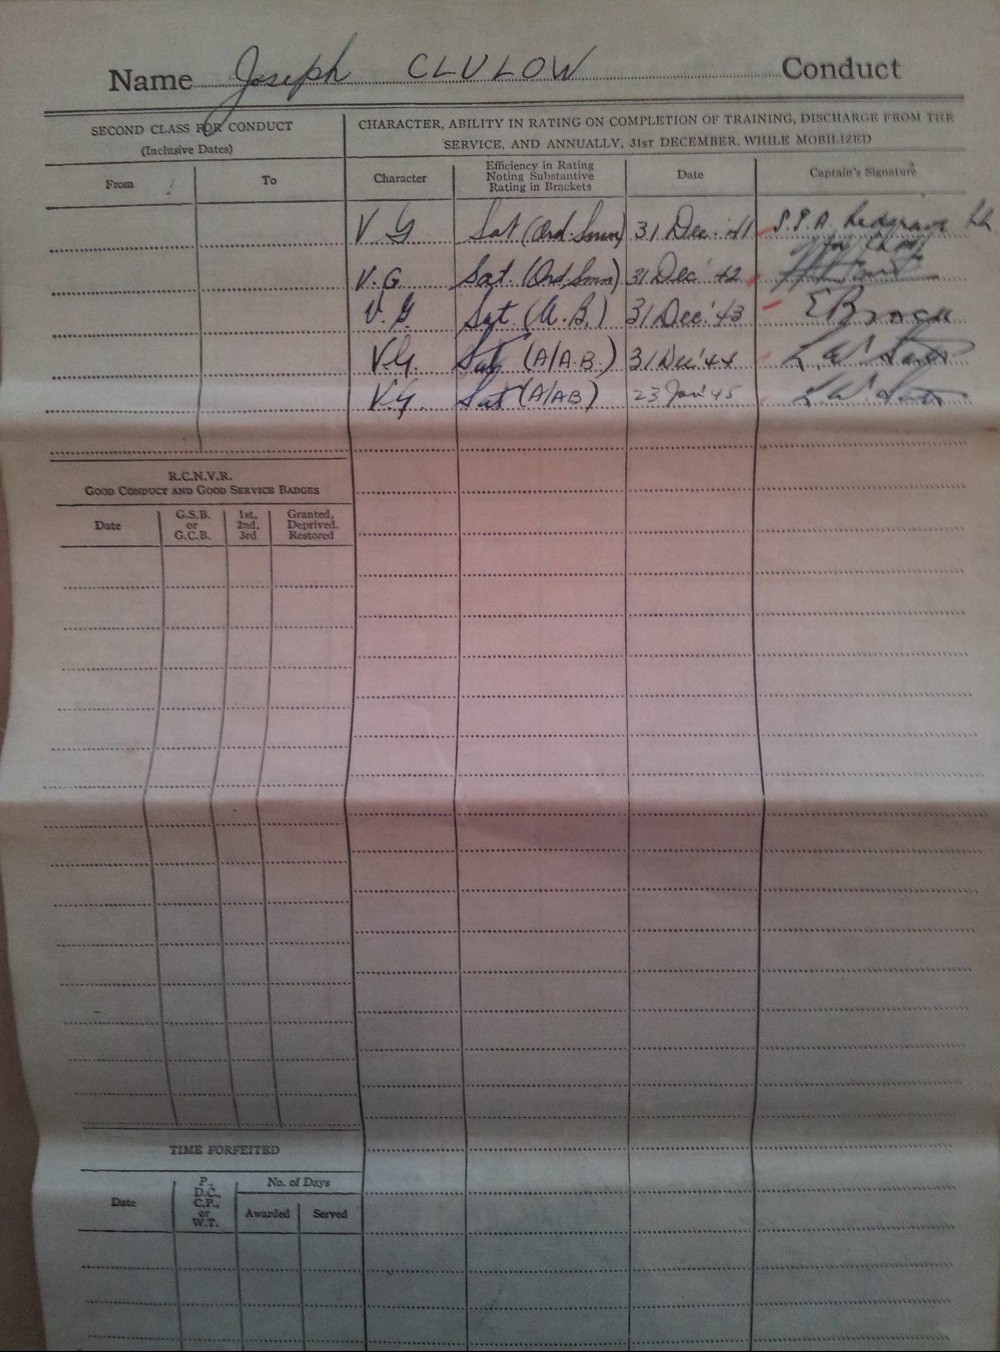 Name Joseph CLULOW Conduct
SECOND CLASS FOR CONDUCT
(Inclusive Dates)
From To
CHARACTER, ABILITY IN RATING ON COMPLETION OF TRAINING, DISCHARGE FROM THE
SERVICE, AND ANNUALLY, 31ST DECEMBER, WHILE MOBILIZED
Character
Efficiency in Rating
Noting Substantive
Rating in Brackets
Date
Captain's Signature
V G Sat (Ord. Smn) 31 Dec. '41
V.G Sat. (Ord. Smn) 31 Dec' 42
V.G Sat. (A.B.) 31 Dec. '43
VG. Sat (A/A.B.) 31 Dec '44 L. W.
V.G. Sat (A/AB) 23 Jan '45 L W
R.C.N.V.R.
GOOD CONDUCT AND GOOD SERVICE BADGES
Date
G.S.B.
or
G.C.B.
1st,
2nd,
3rd
Granted,
Deprived,
Restored
TIME FORFEITED
Date
P.,
D.C.,
C.P.,
or
W.T.
No. of Days
Awarded Served